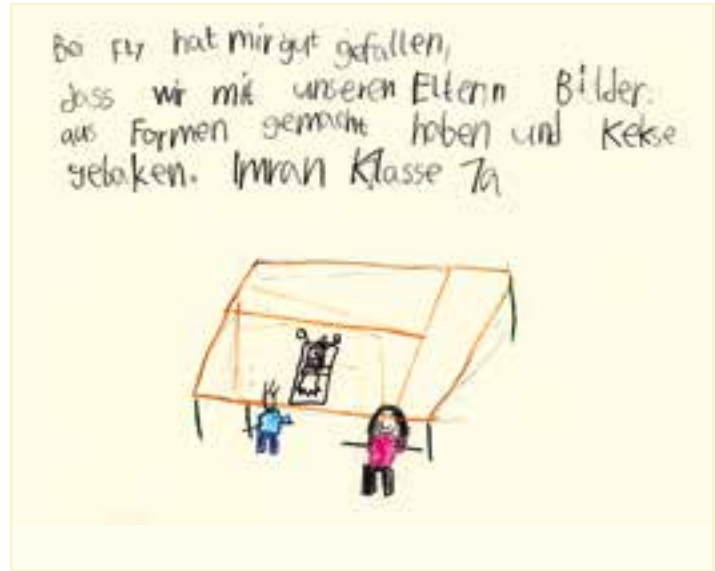 Bei Fly hat mir gut gefallen,
dass wir mit unseren Elternn Bilder
aus Formen gemacht haben und Kekse
gebaken. Imran Klasse 7a